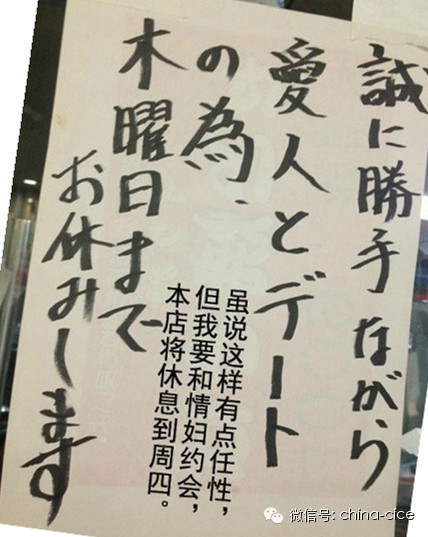 誠に勝手ながら
愛人とデート
の為、
木曜日まで
お休みします
虽说这样有点任性，
但我要和情妇约会，
本店将休息到周四。
微信号: china-cice